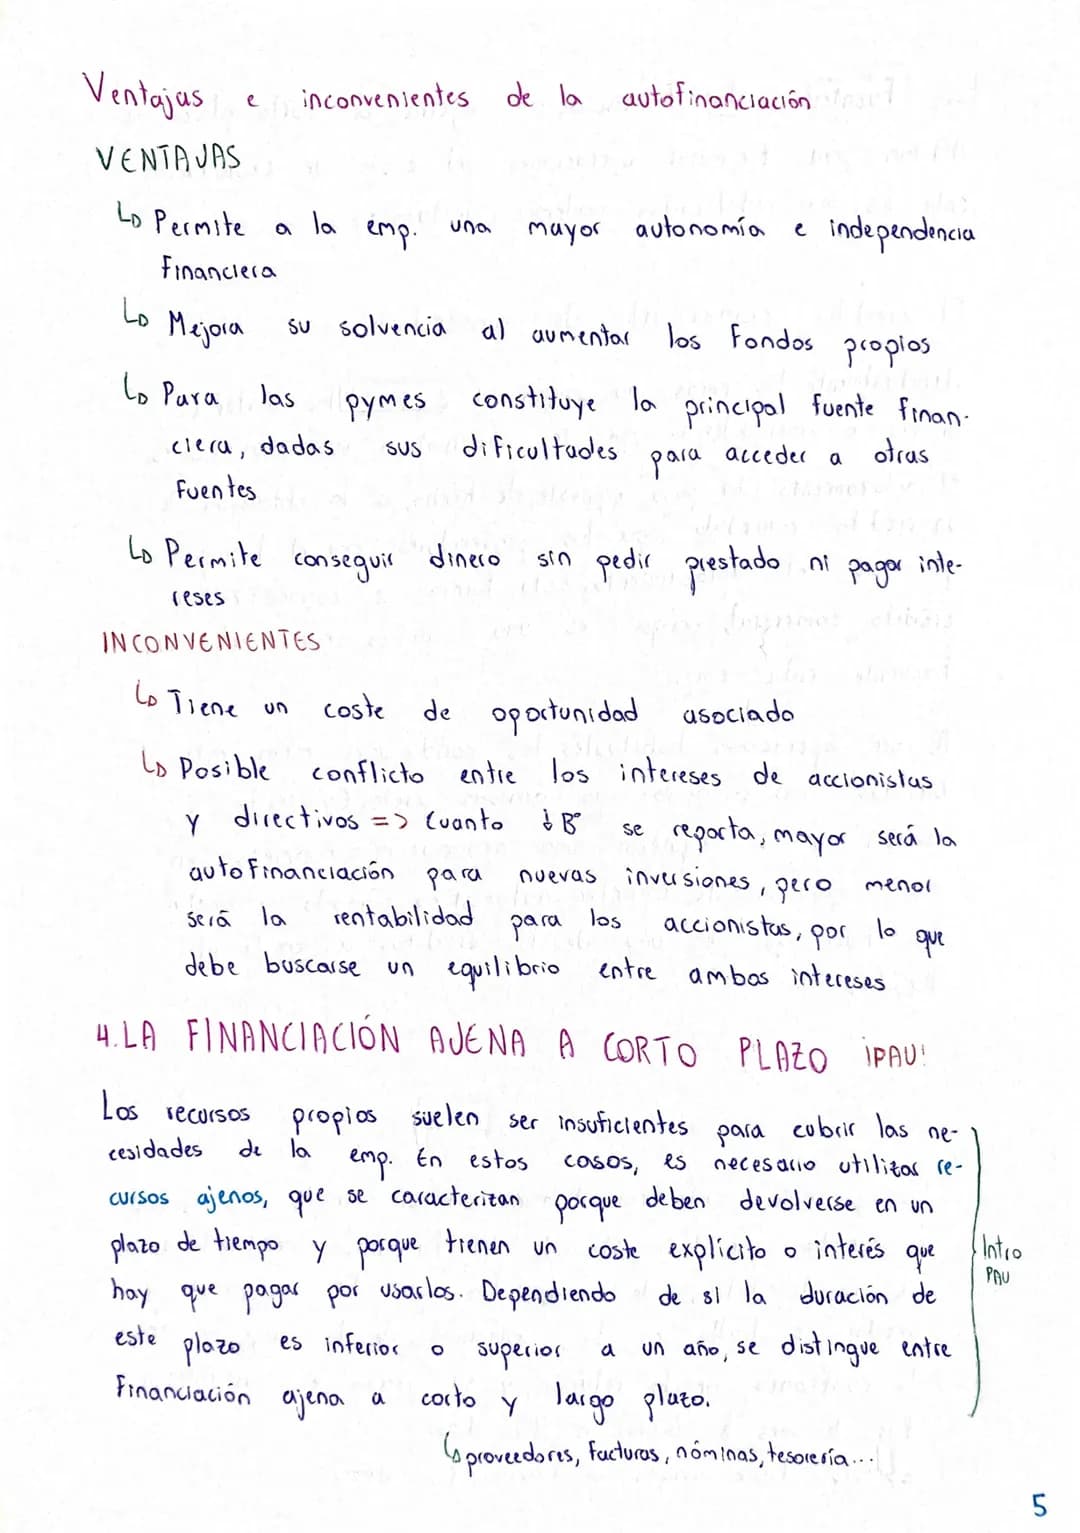 Ventajas e inconvenientes de la autofinanciación
VENTAJAS
↳ Permite a la emp. una mayor autonomía e independencia
financiera
↳ Mejora su solvencia al aumentar los fondos propios
↳ Para las pymes constituye la principal fuente finan-
ciera, dadas sus dificultades para acceder a otras
fuentes
↳ Permite conseguir dinero sin pedir prestado ni pagar inte-
reses
INCONVENIENTES
↳ Tiene un coste de oportunidad asociado
↳ Posible conflicto entre los intereses de accionistas
y directivos => Cuanto ↓ Bº se reporta, mayor será la
autofinanciación para nuevas inversiones, pero menor
será la rentabilidad para los accionistas, por lo que
debe buscarse un equilibrio entre ambos intereses
4. LA FINANCIACIÓN AJENA A CORTO PLAZO ¡PAU!
Los recursos propios suelen ser insuficientes para cubrir las ne-
cesidades de la emp. En estos casos, es necesario utilizar re-
cursos ajenos, que se caracterizan porque deben devolverse en un
plazo de tiempo y porque tienen un coste explícito o interés que
hay que pagar por usarlos. Dependiendo de si la duración de
este plazo es inferior o superior a un año, se distingue entre
financiación ajena a corto y largo plazo.
Intro
PAU
↳ proveedores, facturas, nóminas, tesorería...
5